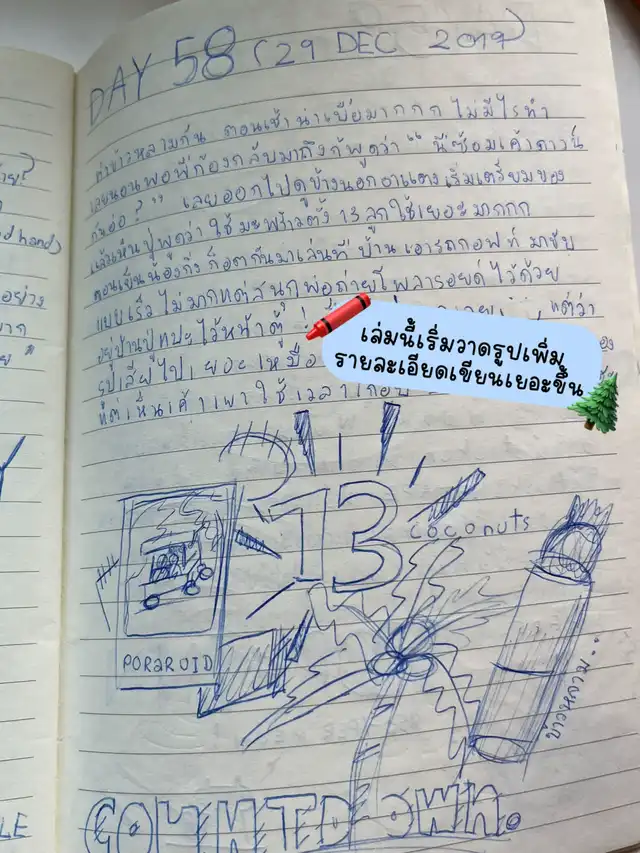 DAY 58 (29 DEC 2019)
ทำข้าวหลามกัน ตอนเช้าน่าเบื่อมากกก ไม่มีไรทำ
เลยนอนพอพี่ก้องกลับมาถึงก็พูดว่า " นี่ซ้อมเค้าดาวน์
กันอ่อ?" เลยออกไปดูข้างนอกอาแดงเริ่มเตรียมของ
แล้วเห็นปู่พูดว่าใช้มะพร้าวตั้ง 13 ลูกใช้เยอะมากกก
ตอนเย็นน้องกิ่ง ก็อตกันมาเล่นที่บ้าน เอารถกอฟท์ มาขับ
แบบเร็ว ไม่มากแต่สนุกพ่อถ่ายโพลารอยด์ ไว้ด้วย
อยู่บ้านปู่แปะไว้หน้าตู้ แต่ว่า
รูปเสียไปเยอะเหมือ
ที่ต่เห็นเค้าเผาใช้เวลาเกือบ
เล่มนี้เริ่มวาดรูปเพิ่ม
รายละเอียดเขียนเยอะขึ้น
13
coconuts
PORAROID
ข้าวหลาม..
COUNTDOWN.